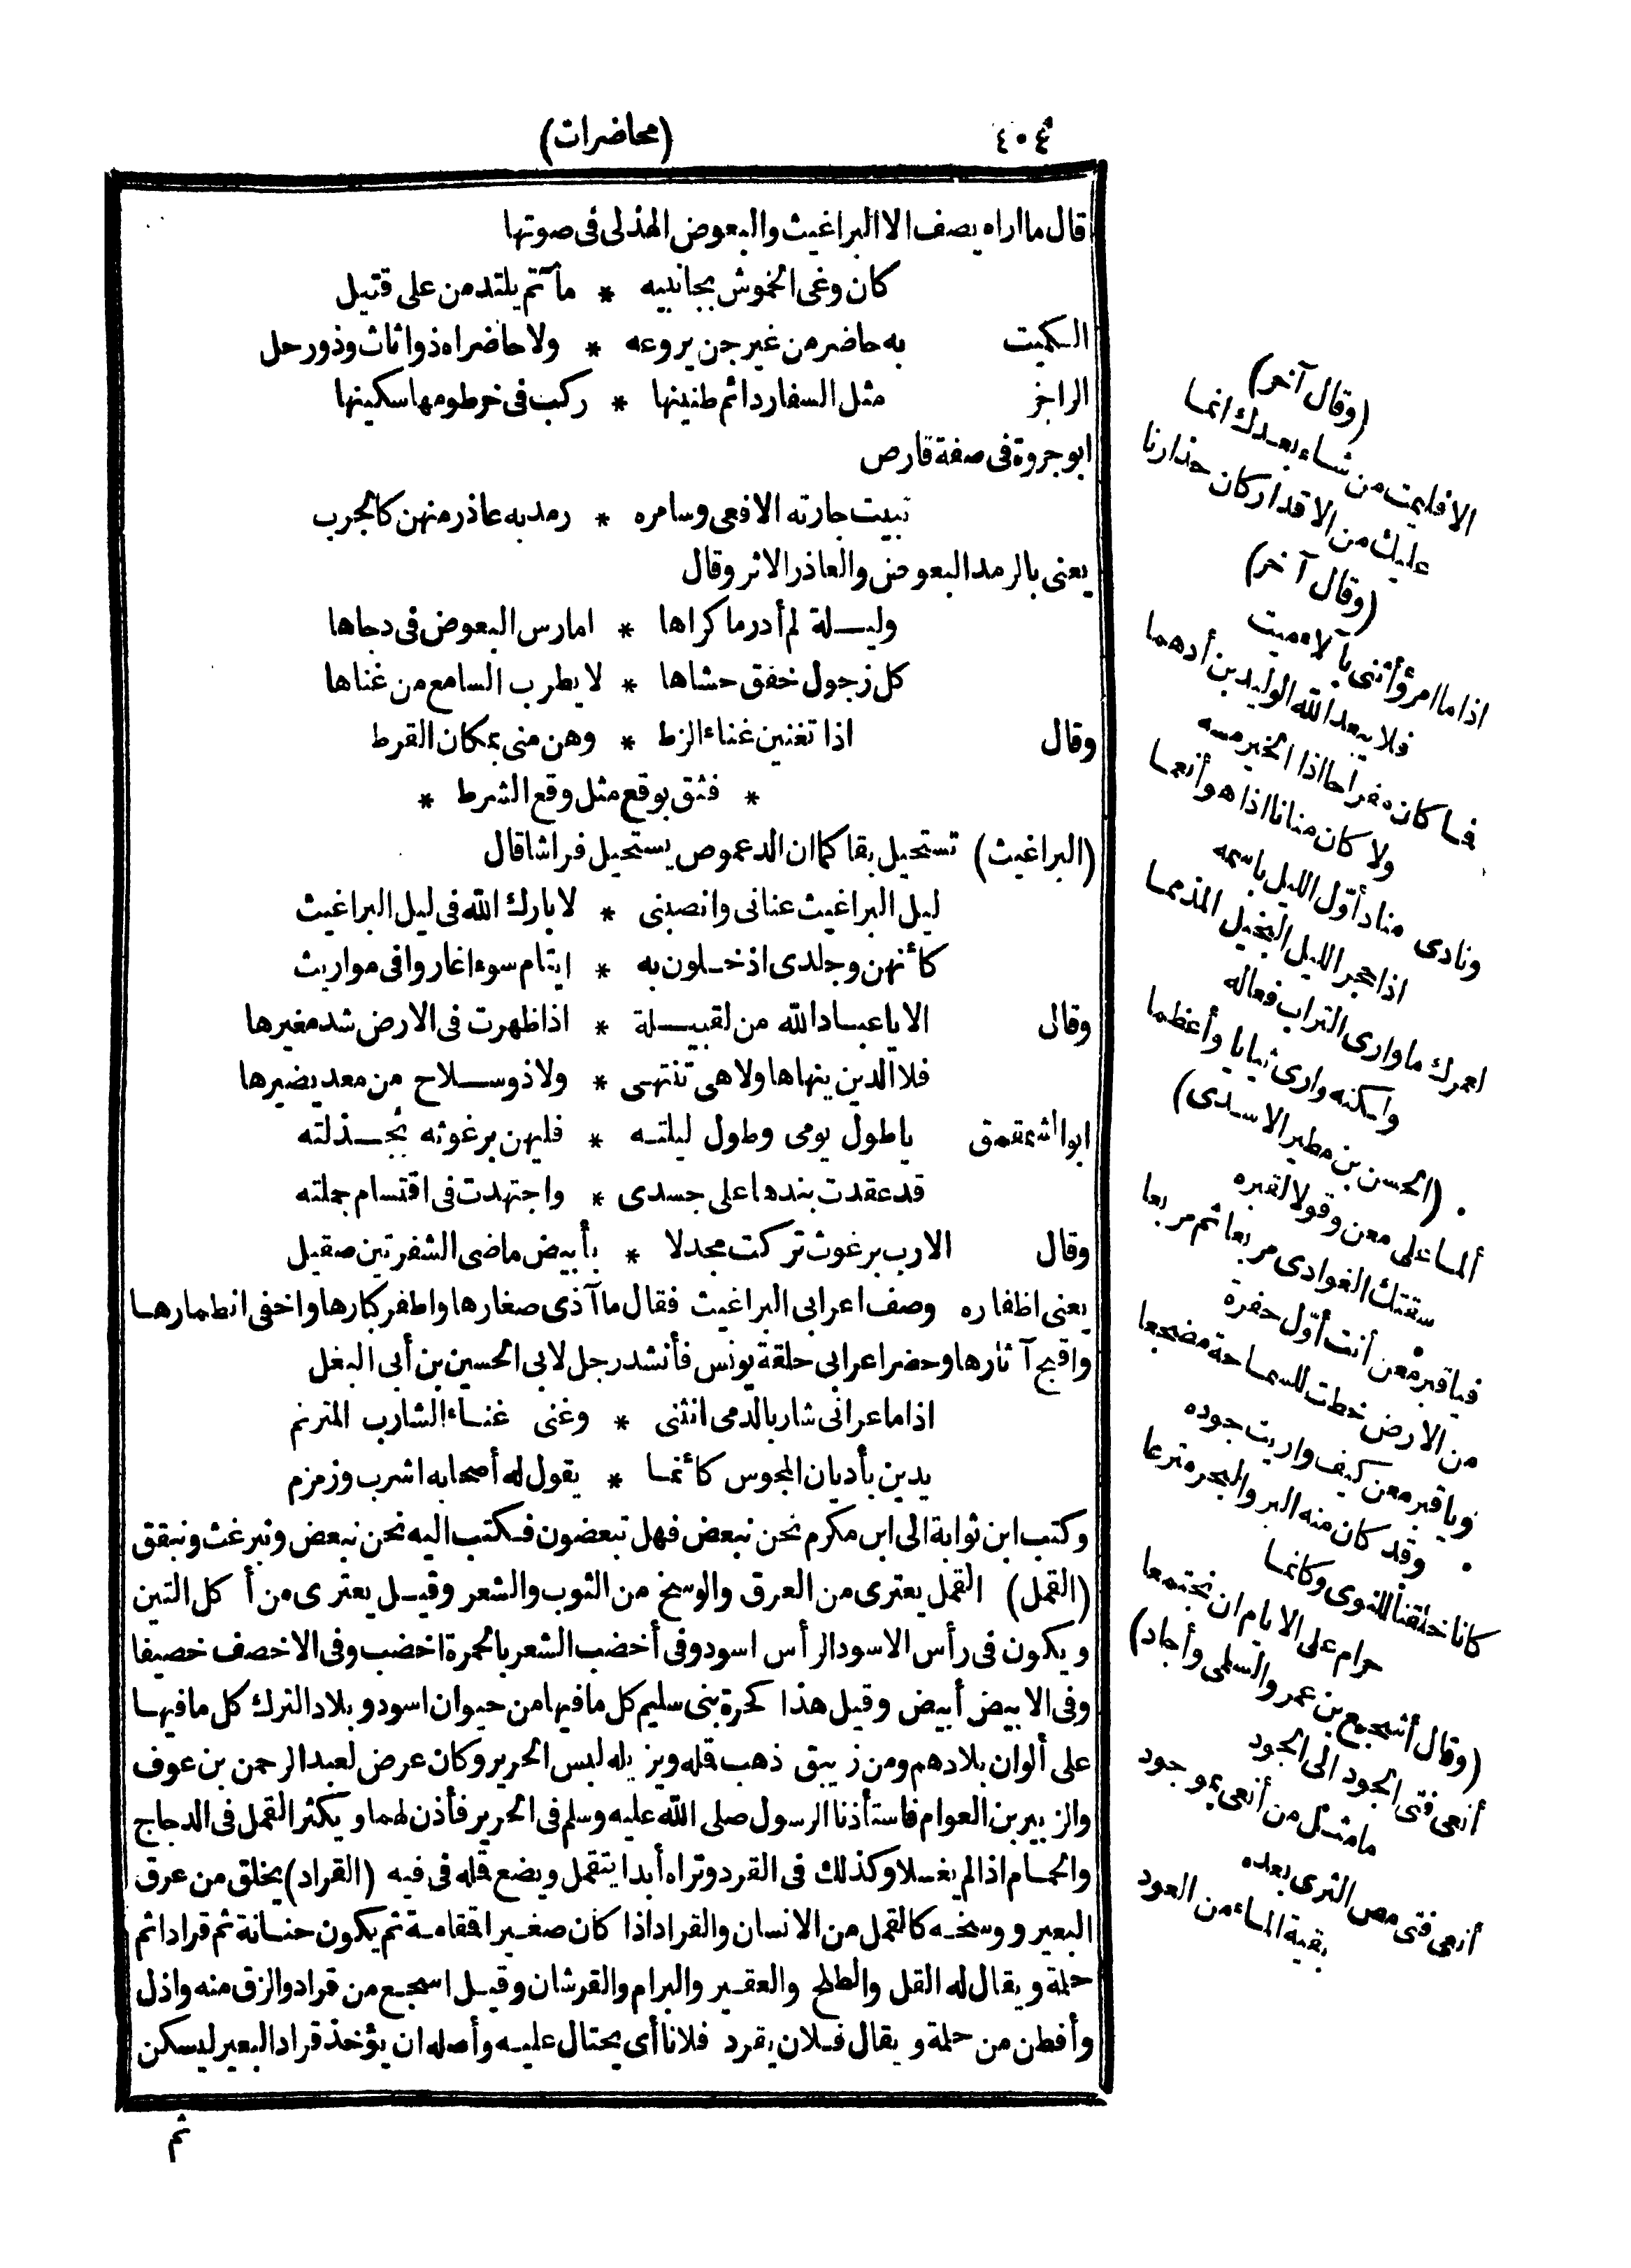 ٤٠٤
(محاضرات)
قال ما اراه يصف الا البراغيث والبعوض الهذلى فى صوتها
كان وغى الخموش بجانبيه * مآتم يلتدمن على قتيل
الكميت به حاضر من غير جن يروعه * ولا حاضراه ذو اثاث وذو رحل
الراجز مثل السفار دائم طنينها * ركب فى خرطومها سكينها
ابو جروة فى صفة قارص
تبيت جارته الافعى وسامره * رمد به عاذر منهن كالجرب
يعنى بالرمد البعوض والعاذر الاثر وقال
وليلة لم أدر ما كراها * امارس البعوض فى دجاها
كل زجول خفق حشاها * لا يطرب السامع من غناها
وقال اذا تغنين غناء الزط * وهن منى بمكان القرط
* فثق بوقع مثل وقع الشرط *
(البراغيث) تستحيل بقا كما ان الدعموص يستحيل فراشا قال
ليل البراغيث عنانى وانصبنى * لا بارك الله فى ليل البراغيث
كأنهن وجلدى اذ خلون به * ايتام سوء اغاروا فى مواريث
وقال الا يا عباد الله من لقبيلة * اذا ظهرت فى الارض شد مغيرها
فلا الدين ينهاها ولا هى تنتهى * ولا ذو سلاح من معد يضيرها
ابو الشمقمق يا طول يومى وطول ليلته * فليهن برغوثه بجذلته
قد عقدت بندها على جسدى * واجتهدت فى اقتسام جملته
وقال الا رب برغوث تركت مجدلا * بأبيض ماضى الشفرتين صقيل
يعنى اظفاره وصف اعرابى البراغيث فقال ما آذى صغارها واطفر كبارها واخفى انطمارها
واقبح آثارها وحضر اعرابى حلقة يونس فأنشد رجل لابى الحسين بن أبى البغل
اذا ما عرانى شار بالدمى انثنى * وغنى غناء الشارب المترنم
يدين بأديان المجوس كأنما * يقول له أصحابه اشرب وزمزم
وكتب ابن ثوابة الى ابن مكرم نحن نبعض فهل تبعضون فكتب اليه نحن نبعض ونبرغث ونبقق
(القمل) القمل يعترى من العرق والوسخ من الثوب والشعر وقيل يعترى من أكل التين
ويكون فى رأس الاسود الرأس اسود وفى أخضب الشعر بالحمرة اخضب وفى الاخصف خصيفا
وفى الابيض أبيض وقيل هذا كحرة بنى سليم كل ما فيها من حيوان اسود وبلاد الترك كل ما فيها
على ألوان بلادهم ومن زيبق ذهب قمله ويزيله لبس الحرير وكان عرض لعبد الرحمن بن عوف
والزبير بن العوام فاستأذنا الرسول صلى الله عليه وسلم فى الحرير فأذن لهما ويكثر القمل فى الدجاج
والحمام اذا لم يغسلا وكذلك فى القرد وتراه أبدا يتقمل ويضع قمله فى فيه (القراد) يخلق من عرق
البعير ووسخه كالقمل من الانسان والقراد اذا كان صغيرا قمقامة ثم يكون حنانة ثم قرادا ثم
حلمة ويقال له القل والطلح والعقير والبرام والقرشان وقيل اسمع من قراد والزق منه واذل
وأفطن من حلمة ويقال فلان يقرد فلانا أى يحتال عليه وأصله ان يؤخذ قراد البعير ليسكن
ثم
(وقال آخر)
الا فليمت من شاء بعدك انما
عليك من الاقدار كان حذارنا
(وقال آخر)
اذا ما امرؤ أثنى بآلاء ميت
فلا يبعد الله الوليد بن أدهما
فما كان مفراحا اذا الخير مسه
ولا كان منانا اذا هو أنعما
ونادى مناد أول الليل باسمه
اذا هجر الليل البخيل المذمما
لعمرك ما وارى التراب فعاله
ولكنه وارى ثيابا وأعظما
(الحسن بن مطير الاسدى)
ألما على معن وقولا لقبره
سقتك الغوادى مربعا ثم مربعا
فيا قبر معن أنت أول حفرة
من الارض خطت للسماحة مضجعا
ويا قبر معن كيف واريت جوده
وقد كان منه البر والبحر مترعا
كانا خلقنا للنوى وكانما
حرام على الايام ان نجتمعا
(وقال أشجع بن عمرو السلمى وأجاد)
أنعى فتى الجود الى الجود
ما مثل من أنعى بموجود
أنعى فتى مص الثرى بعده
بقية الماء من العود